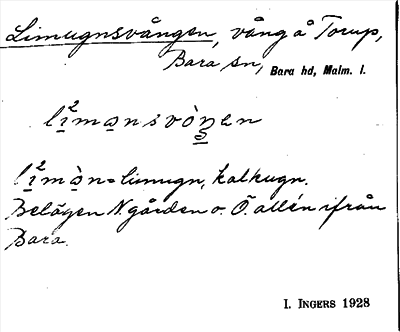 Limugnsvången, vång å Torup,
Bara sn, Bara hd, Malm. l.
lì²mansvòŋen
lì²màn = limugn, kalkugn.
Belägen N. gården o. Ö. allén ifrån
Bara.
I. INGERS 1928